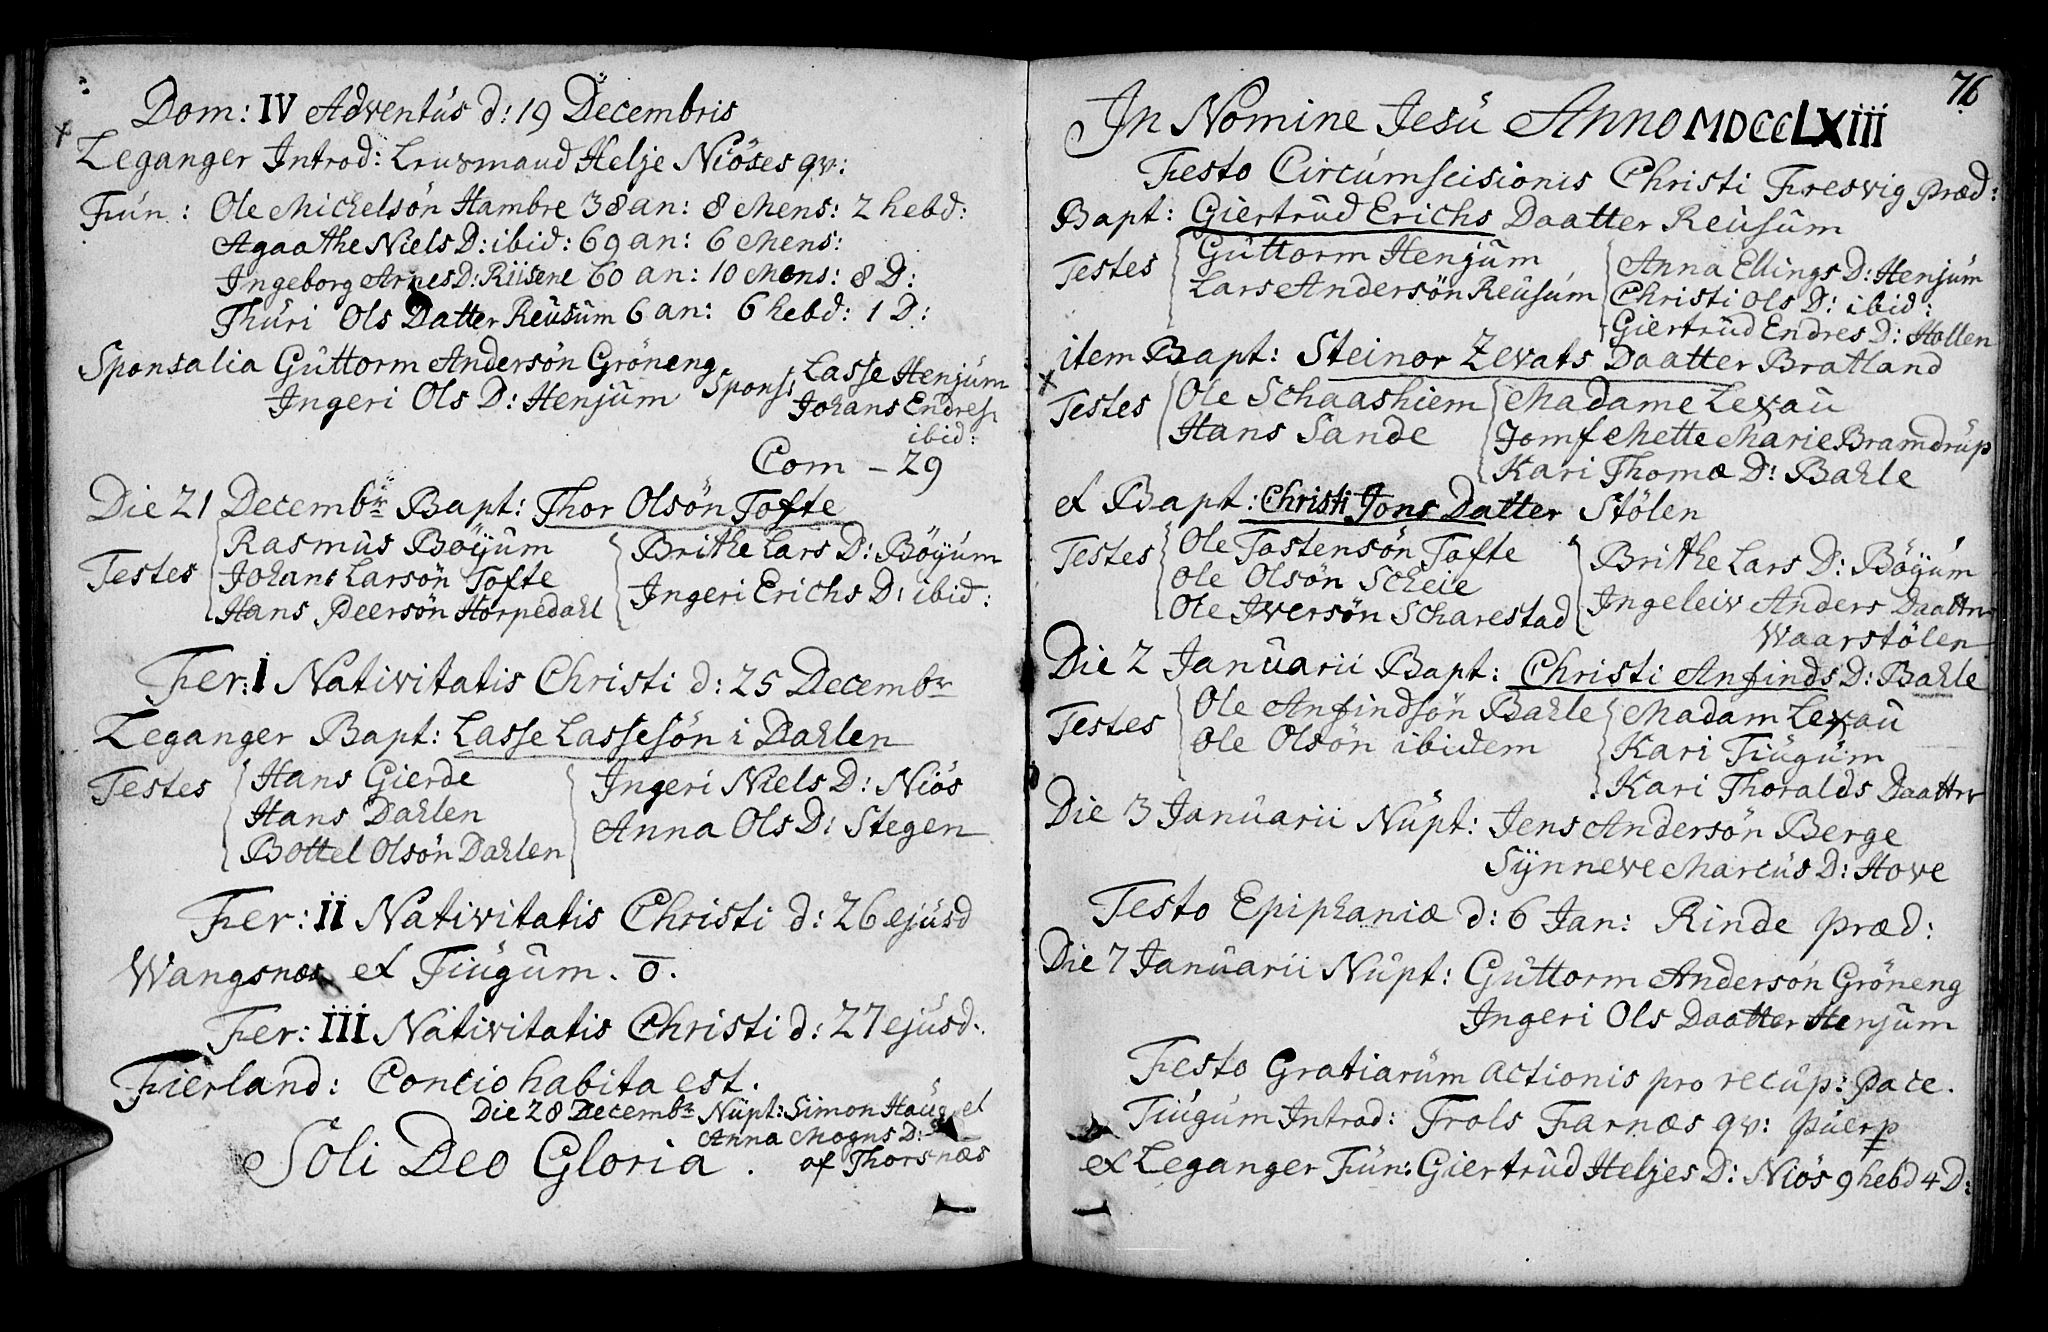 Dom: IV Adventus d: 19 Decembris
Leganger Introd: Helje Niöses qv:
Fun: Ole Mickelsön Hambre 38 an: 8 Mens: 2 hebd:
Agaathe Niels D: ibid: 69 an: 6 Mens:
Ingeborg Arnes D: Riisene 60 an: 10 Mens: 8 D:
Thuri Ols Datter Reusum 6 an: 6 hebd: 1 D:
Sponsalia Guttorm Andersön Gröneng
Ingeri Ols D: Henjum Spons: Lasse Henjum
Johans Endres:
ibid:
Com – 29
Die 21 Decembr Bapt: Thor Olsön Tofte
Testes Rasmus Böyum
Johans Larsön Tofte
Hans Peersön Horpedahl
Brithe Lars D: Böyum
Ingeri Erichs D: ibid:
Fer: I Nativitatis Christi d: 25 Decembr
Leganger Bapt: Lasse Lassesön i Dahlen
Testes Hans Gierde
Hans Dahlen
Bottel Olsön Dahlen
Ingeri Niels D: Niös
Anna Ols D: Stegen
Fer: II Nativitatis Christi d: 26 ejusd
Wangsnæs et Tiugum. o.
Fer: III Nativitatis Christi d: 27 ejusd.
Fierland: Concio habita est.
Die 28 Decembr Nupt: Simon Haug et
Anna Mogns D:
af Thorsnæs
Soli Deo Gloria.
76
In Nomine Jesu Anno MDCCLXIII
Festo Circumscisionis Christi Fresvig Præd:
Bapt: Giertrud Erichs Daatter Reusum
Testes Guttorm Henjum
Lars Andersön Reusum
Anna Ellings D: Henjum
Christi Ols D: ibid:
Giertrud Endres D: Hollen
item Bapt: Steinor Zevats Daatter Bratland
Testes Ole Schaashiem
Hans Sande
Madame Lexau
Jomf Mette Marie Bramdrup
Kari Thomæ D: Bahle
et Bapt: Christi Jons Datter Stölen
Testes Ole Tostensön Tofte
Ole Olsön Scheie
Ole Iversön Scharestad
Brithe Lars D: Böyum
Ingeleiv Anders Daatter
Waarstölen
Die 2 Januarii Bapt: Christi Anfinds D: Bahle
Testes Ole Anfindsön Bahle
Ole Olsön ibidem
Madam Lexau
Kari Tiugum
Kari Thoralds Daatter
Die 3 Januarii Nupt: Jens Andersön Berge
Synneve Marcus D: Hove
Festo Epiphaniæ d: 6 Jan: Rinde præd:
Die 7 Januarii Nupt: Guttorm Andersön Gröneng
Ingeri Ols Daatter Henjum
Festo Gratiarum actionis pro recup: Pace.
Tiugum Introd: Frols Farnæs qv: puerp
et Leganger Fun: Giertrud Heljes D: Niös 9 hebd 4 D: